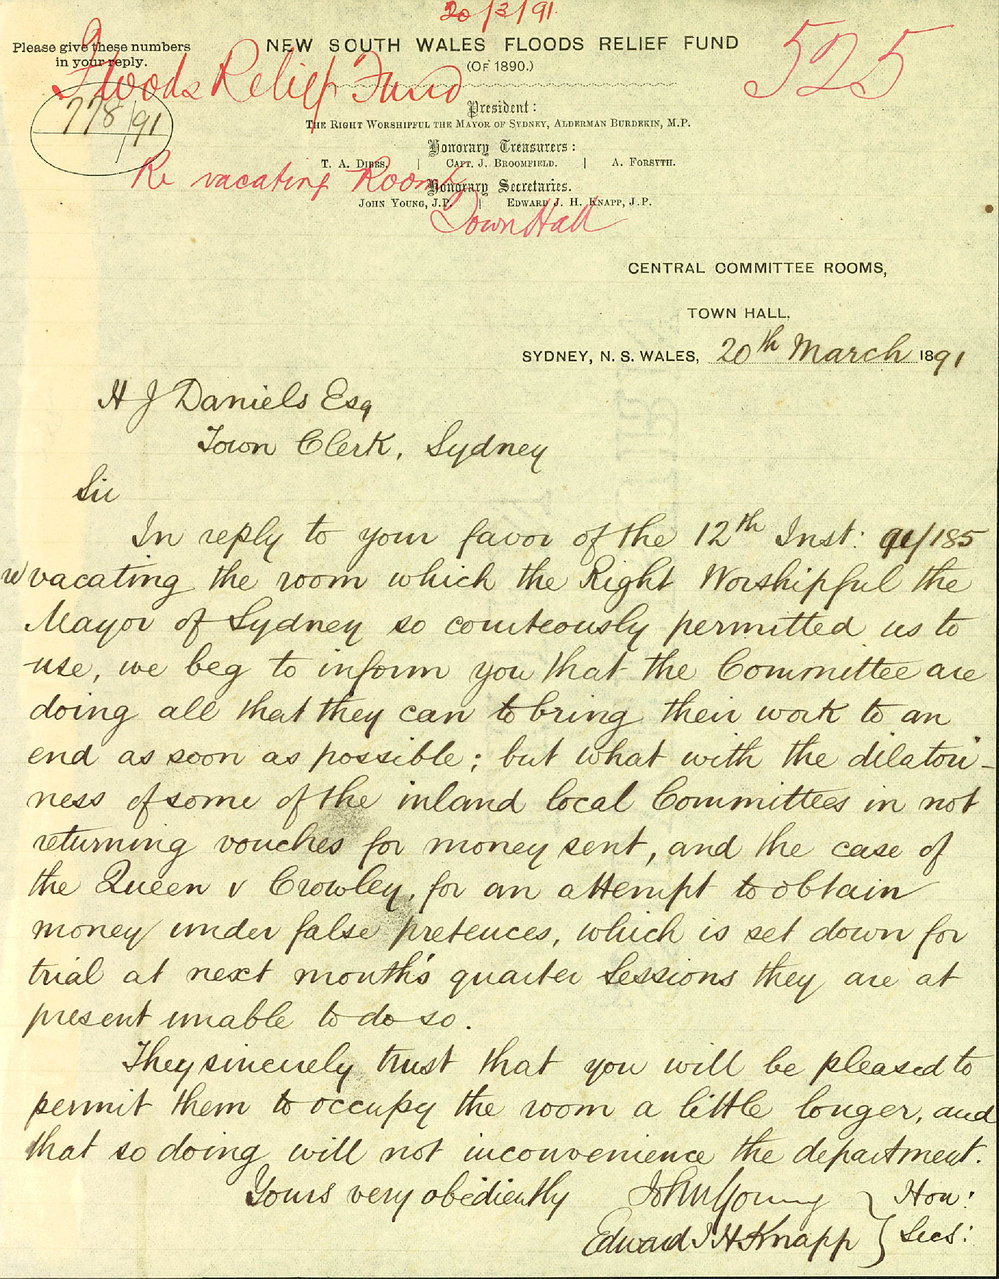 20/3/91
Please give these numbers
in your reply.
NEW SOUTH WALES FLOODS RELIEF FUND
(OF 1890.)
525
Floods Relief Fund
778/91
President:
THE RIGHT WORSHIPFUL THE MAYOR OF SYDNEY, ALDERMAN BURDEKIN, M.P.
Honorary Treasurers:
T. A. DIBBS, | CAPT. J. BROOMFIELD. | A. FORSYTH.
Re vacating Room
Honorary Secretaries.
JOHN YOUNG, J.P. | EDWARD J. H. KNAPP, J.P.
Town Hall
CENTRAL COMMITTEE ROOMS,
TOWN HALL,
SYDNEY, N. S. WALES, 20th March 1891
H J Daniels Esq
Town Clerk, Sydney
Sir
In reply to your favor of the 12th Inst: 91/185
re vacating the room which the Right Worshipful the
Mayor of Sydney so courteously permitted us to
use, we beg to inform you that the Committee are
doing all that they can to bring their work to an
end as soon as possible; but what with the dilatori-
ness of some of the inland local Committees in not
returning vouches for money sent, and the case of
the Queen v Crowley, for an attempt to obtain
money under false pretences, which is set down for
trial at next month's quarter Sessions they are at
present unable to do so.
They sincerely trust that you will be pleased to
permit them to occupy the room a little longer, and
that so doing will not inconvenience the department.
Yours very obediently John Young } Hon:
Edward J H Knapp } Secs: